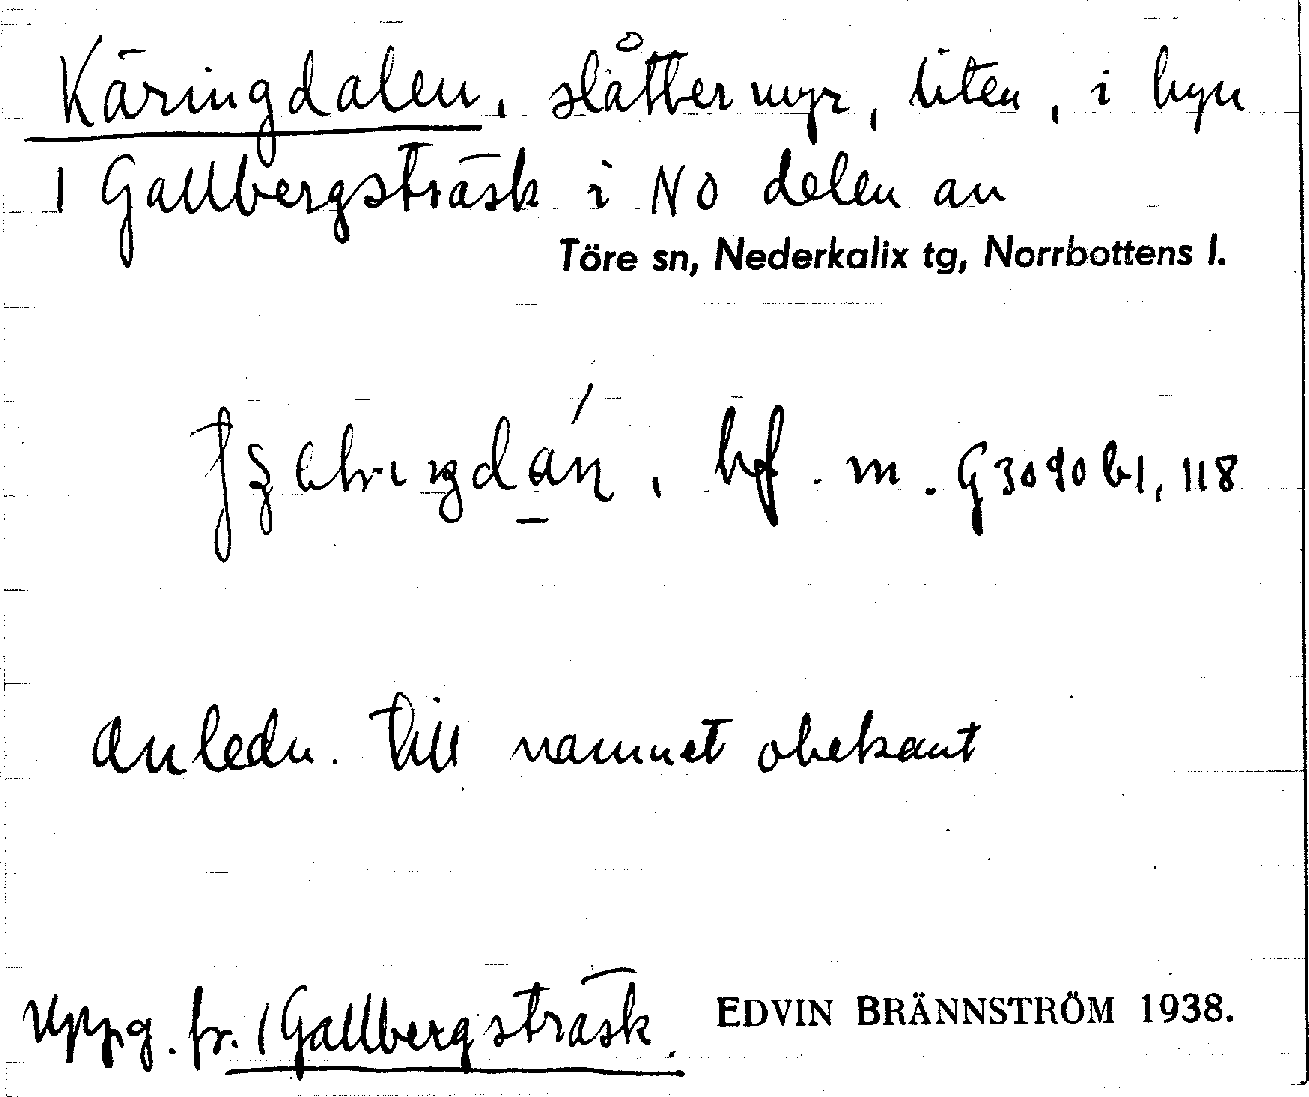 Käringdalen, slåttermyr, liten, i byn
1 Gallbergsträsk i NO delen av
Töre sn, Nederkalix tg, Norrbottens l.
bf. m. G3090 b1, 118
Anledn. till namnet obekant
Uppg. fr. 1 Gallbergsträsk. EDVIN BRÄNNSTRÖM 1938.